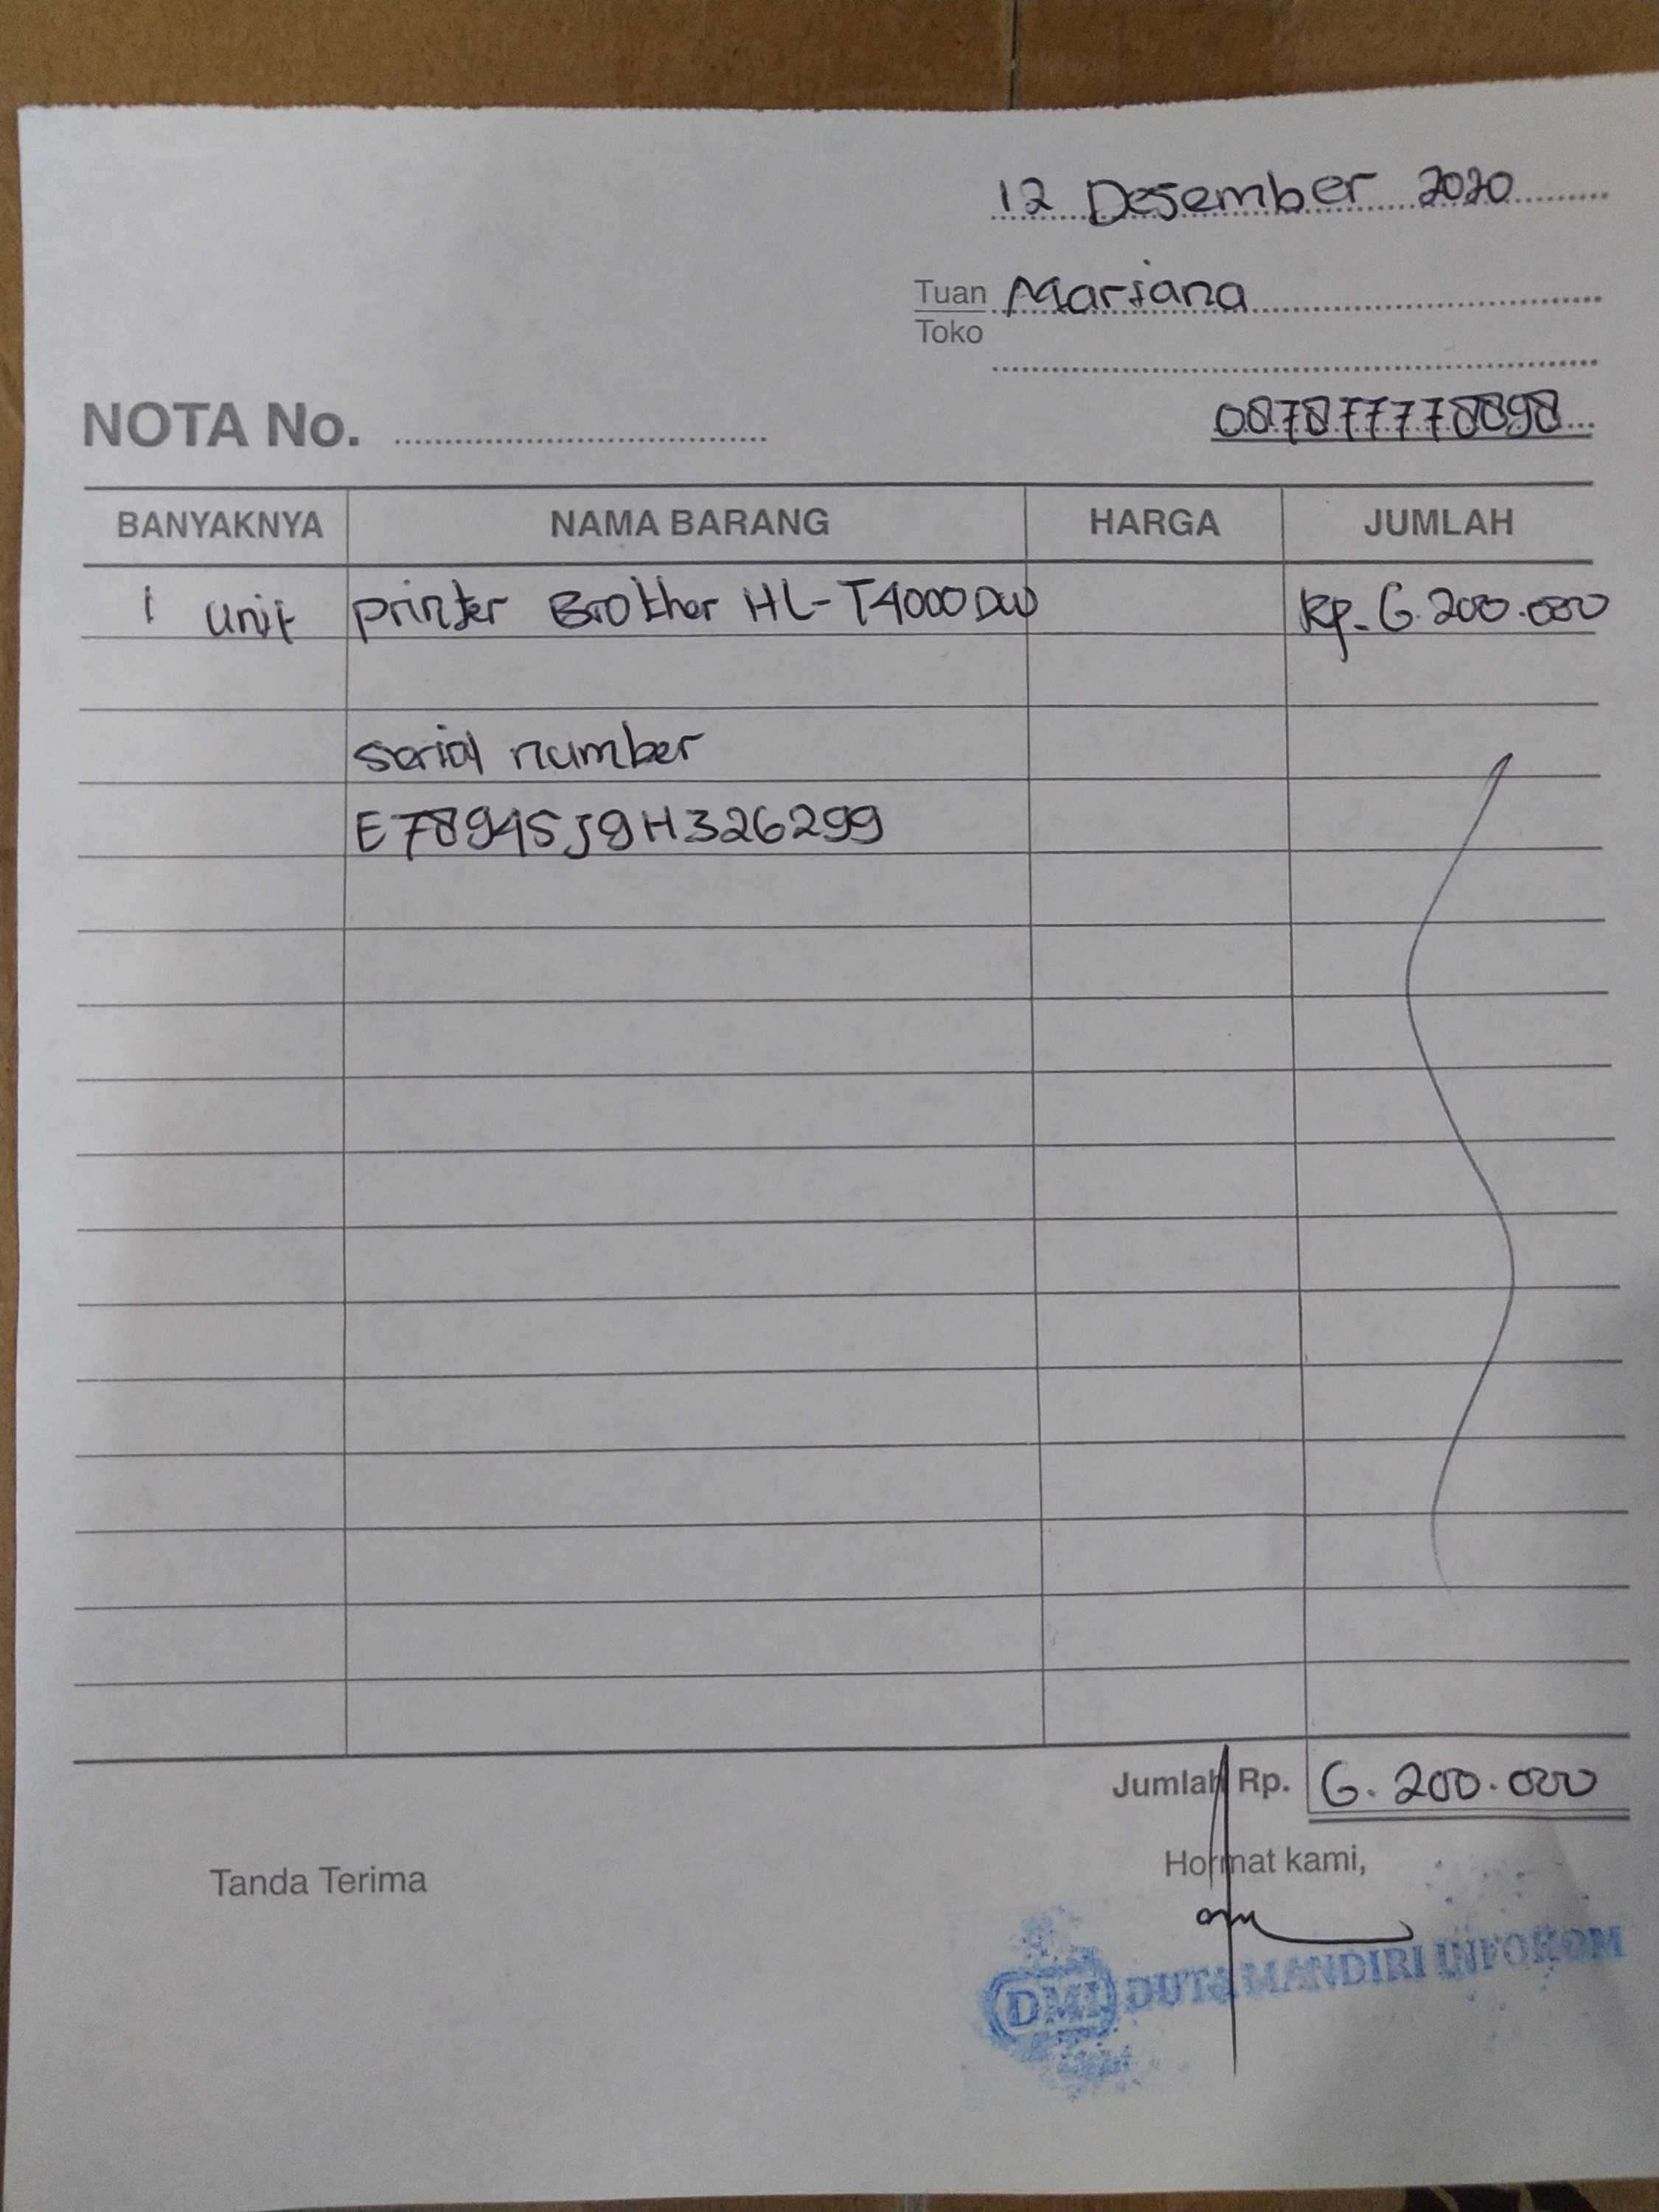 12 Desember 2020
Tuan Mariana
Toko
NOTA No.
087877778898
BANYAKNYA NAMA BARANG HARGA JUMLAH
1 unit printer Brother HL-T4000DW Rp. 6.200.000
serial number
E78945J9H326299
Jumlah Rp. 6.200.000
Tanda Terima Hormat kami,
DMI DUTA MANDIRI INFOKOM